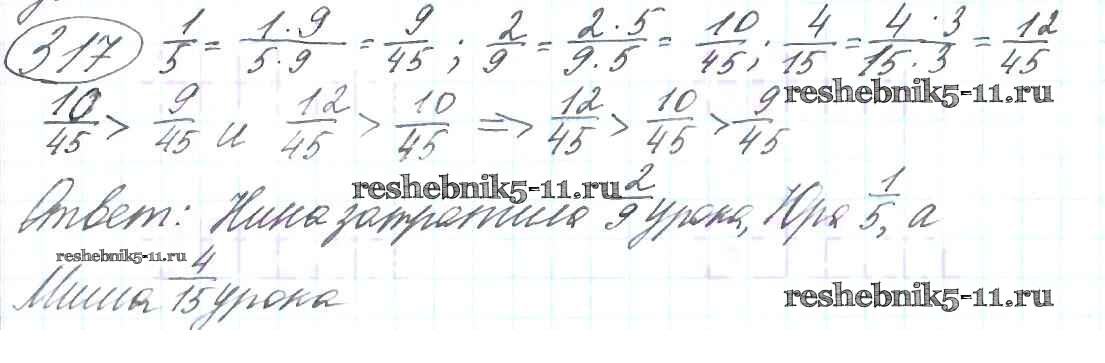 317 1/5 = 1·9/5·9 = 9/45; 2/9 = 2·5/9·5 = 10/45; 4/15 = 4·3/15·3 = 12/45
reshebnik5-11.ru
10/45 > 9/45 и 12/45 > 10/45 => 12/45 > 10/45 > 9/45
reshebnik5-11.ru
Ответ: Нина затратила 2/9 урока, Юра 1/5, а
reshebnik5-11.ru
Миша 4/15 урока
reshebnik5-11.ru